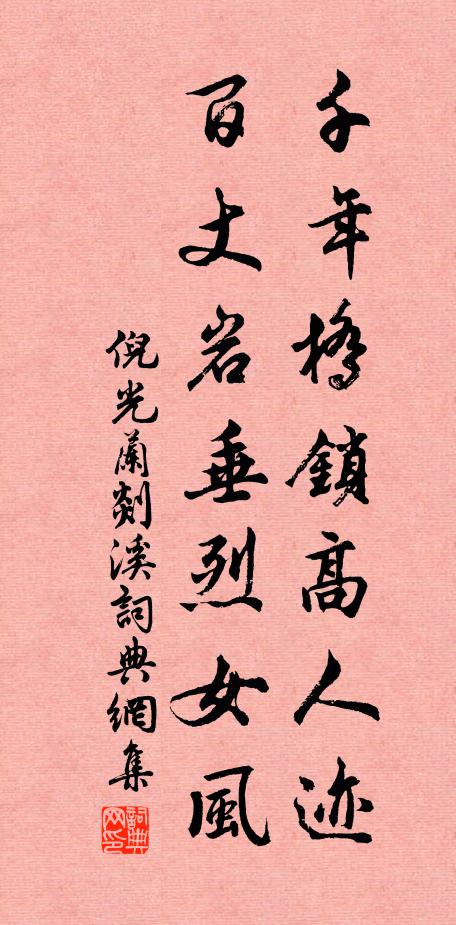 千年橋鎖高人迹
百丈岩垂烈女風
倪光蘭剡溪詞典網集
詞典网印